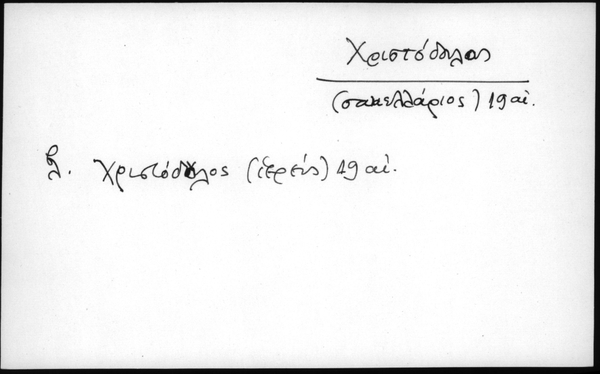 Χριστόδουλος
(σακελλάριος) 19 αἰ.
βλ. Χριστόδουλος (ἱερεύς) 19 αἰ.